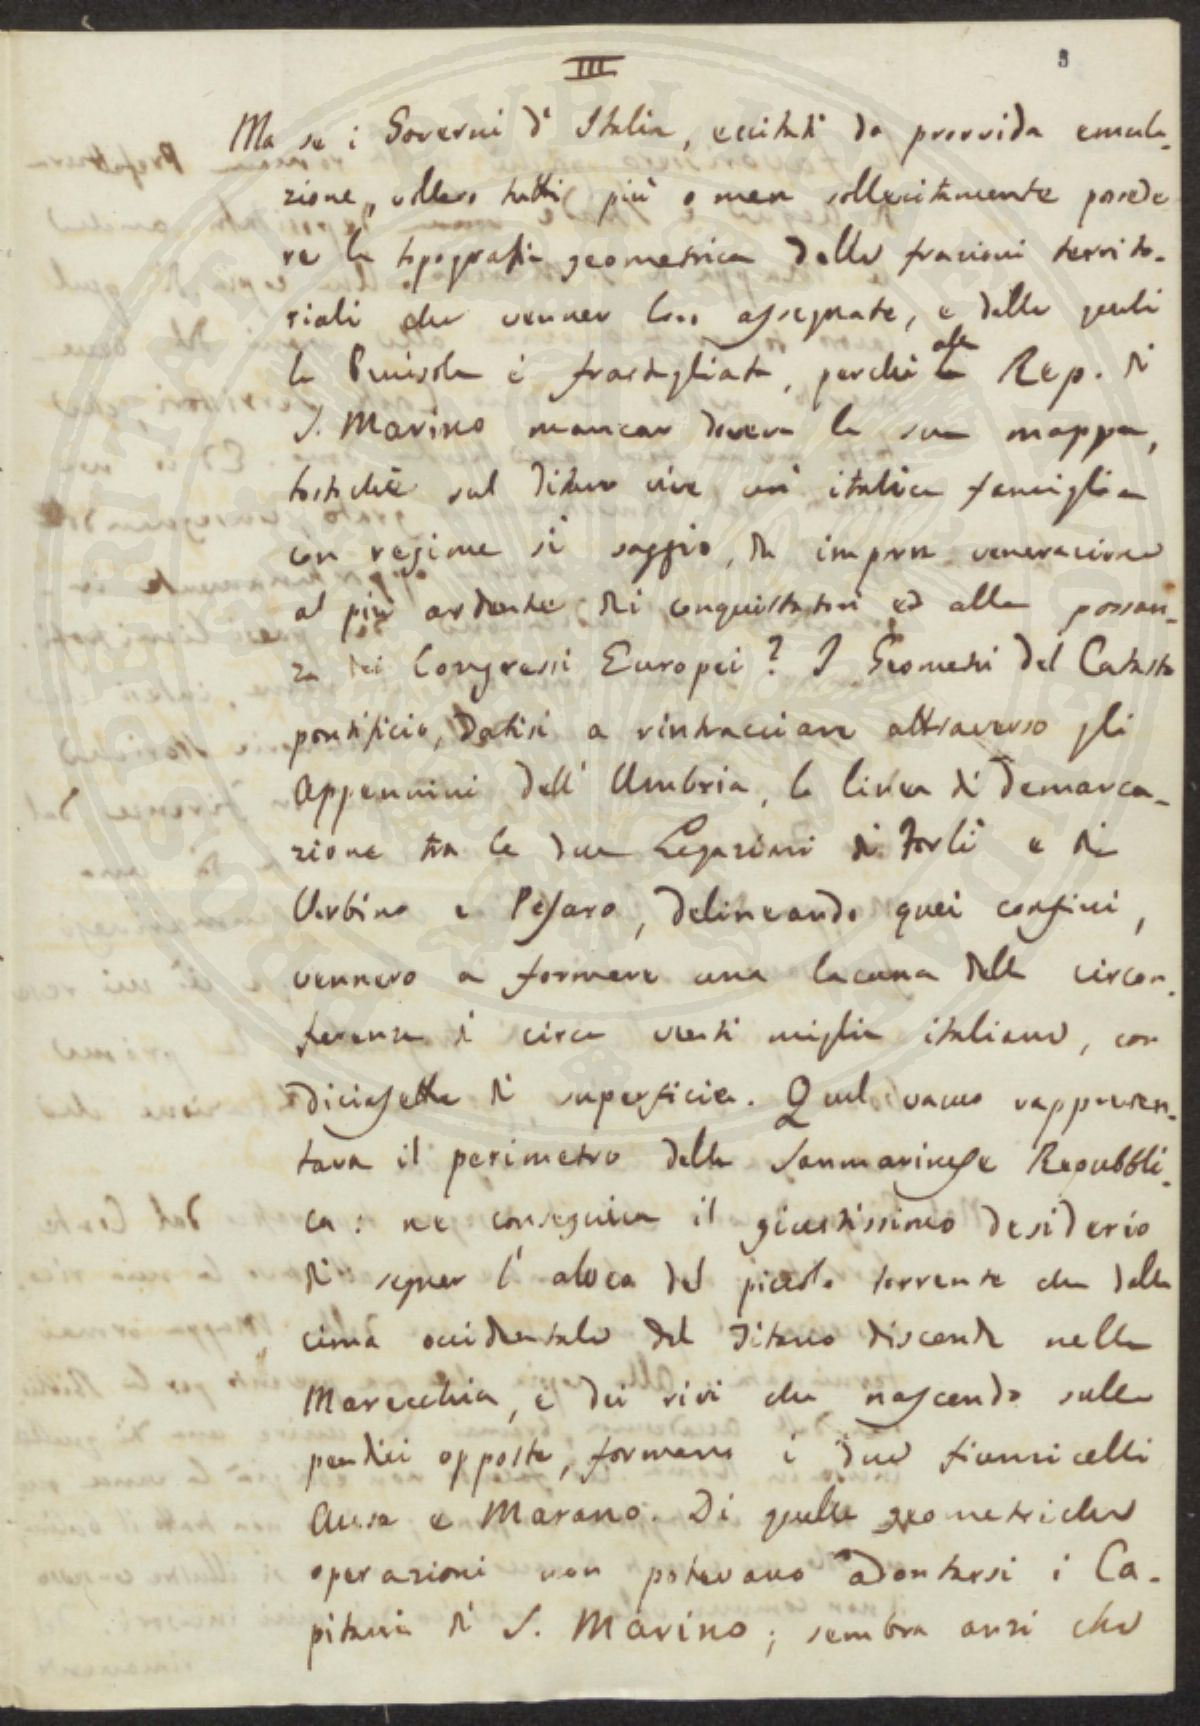 III
3
Ma se i Governi d'Italia, eccitati da provvida emula-
zione, vollero tutti più o men sollecitamente possede
re la topografia geometrica delle frazioni territo-
riali che venner loro assegnate, e delle quali
la Penisola è frastagliata, perchè la alla Rep. di
S. Marino mancar doveva la sua mappa,
tostochè sul Titano vive un' italica famiglia
con regime sì saggio, da imprn venerazione
al più ardente dei conquistatori ed alla possan-
za dei Congressi Europei? I Geometri del Catasto
pontificio, datisi a rintracciare attraverso gli
Appennini dell' Umbria, la linea di demarca-
zione tra le due Legazioni di Forlì e di
Urbino e Pesaro, delineando quei confini,
vennero a formare una lacuna della circon-
ferenza di circa venti miglia italiane, con
diciasette di superficie. Quel vacuo rappresen-
tava il perimetro della Sanmarinese Repubbli-
ca: ne conseguiva il giustissimo desiderio
di segnar l'alveo del piccolo torrente che dalla
cima occidentale del Titano discende nella
Marecchia, e dei rivi che nascendo sulle
pendici opposte, formano i due fiumicelli
Ausa e Marano. Di quelle geometriche
operazioni non potevano adontarsi i Ca-
pitani di S. Marino; sembra anzi che